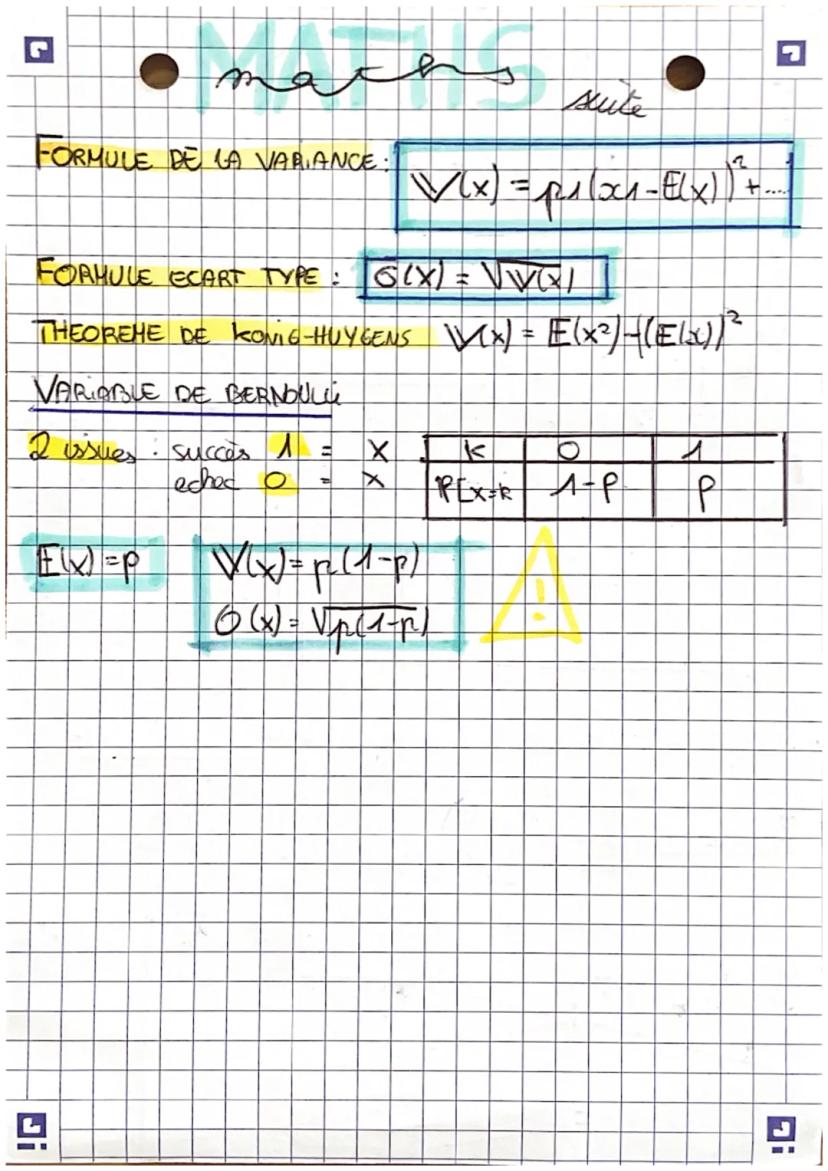 MATHS
maths
suite
FORMULE DE LA VARIANCE : V(x) = p1(x1-E(x))² + ....
FORMULE ECART TYPE : σ(X) = √V(x)
THEOREME DE KONIG-HUYGENS V(x) = E(x²)-(E(x))²
VARIABLE DE BERNOULLI
2 issues : succès 1 = X
echec 0 = x
k 0 1
P[x=k 1-p p
E(x) = p
V(x) = p(1-p)
σ(x) = √p(1-p)
!